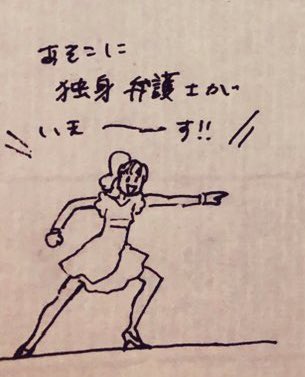 あそこに
独身弁護士が
いまーーす!!